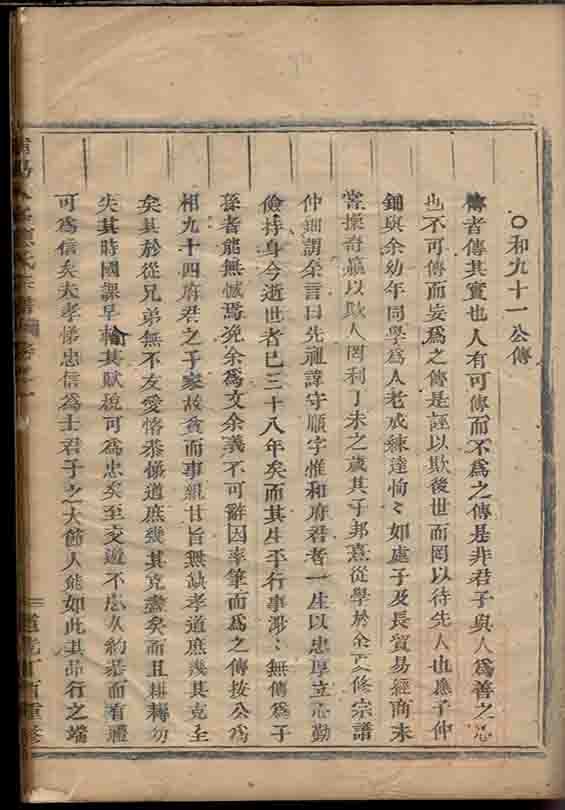 ○和九十一公傳
傳者傳其實也人有可傳而不爲之傳是非君子與人爲善之心
也不可傳而妄爲之傳是誣以欺後世而罔以待先人也應子仲
鈿與余幼年同學爲人老成練達恂々如處子及長貿易經商未
嘗操奇贏以欺人罔利丁未之歲其子邦熹從學於余更修宗譜
仲鈿謂余言曰先祖諱守順字惟和府君者一生以忠厚立心勤
儉持身今逝世者已三十八年矣而其生平行事泯々無傳爲子
孫者能無憾焉浼余爲文余義不可辭因率筆而爲之傳按公爲
相九十四府君之子家故貧而事親甘旨無缺孝道庶幾其克全
矣其於從兄弟無不友愛恪恭悌道庶幾其克盡矣而且耕耨勿
失其時國課早輸其賦稅可爲忠矣至交遊不忘久約恭而有禮
可爲信矣夫孝悌忠信爲士君子之大節人能如此其品行之端
氏宗譜 卷之一
道光丁酉重修